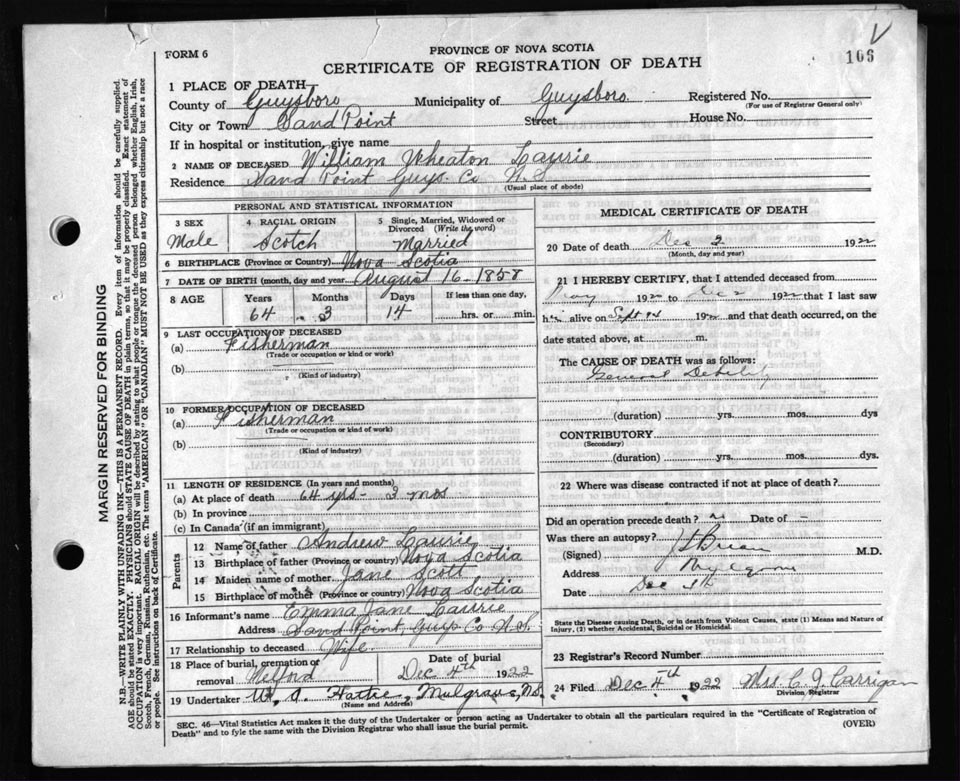 FORM 6
PROVINCE OF NOVA SCOTIA
106
CERTIFICATE OF REGISTRATION OF DEATH
1 PLACE OF DEATH
County of Guysboro Municipality of Guysboro Registered No.
(For use of Registrar General only)
City or Town Sand Point Street House No.
If in hospital or institution, give name
2 NAME OF DECEASED William Wheaton Laurie
Residence Sand Point Guys. Co N.S
(Usual place of abode)
PERSONAL AND STATISTICAL INFORMATION
3 SEX 4 RACIAL ORIGIN 5 Single, Married, Widowed or
Divorced (Write the word)
Male Scotch Married
6 BIRTHPLACE (Province or Country) Nova Scotia
7 DATE OF BIRTH (month, day and year) August 16-1858
8 AGE Years Months Days If less than one day,
64 3 14 hrs. or min.
9 LAST OCCUPATION OF DECEASED
(a) Fisherman
(Trade or occupation or kind or work)
(b)
(Kind of industry)
10 FORMER OCCUPATION OF DECEASED
(a) Fisherman
(Trade or occupation or kind of work)
(b)
(Kind of industry)
11 LENGTH OF RESIDENCE (In years and months)
(a) At place of death 64 yrs- 3 mos
(b) In province
(c) In Canada (if an immigrant)
Parents
12 Name of father Andrew Laurie
13 Birthplace of father (Province or country) Nova Scotia
14 Maiden name of mother Jane Scott
15 Birthplace of mother (Province or country) Nova Scotia
16 Informant's name Emma Jane Laurie
Address Sand Point, Guys Co N.S.
17 Relationship to deceased Wife
18 Place of burial, cremation or Date of burial
removal Melford Dec 4th 1922
19 Undertaker W. A. Hattie, Mulgrave, N.S.
(Name and Address)
MEDICAL CERTIFICATE OF DEATH
20 Date of death Dec 2 1922
(Month, day and year)
21 I HEREBY CERTIFY, that I attended deceased from
May 1922 to Dec 2 1922 that I last saw
him alive on Sept 1922 and that death occurred, on the
date stated above, at m.
The CAUSE OF DEATH was as follows:
General Debility
(duration) yrs. mos. dys
CONTRIBUTORY
(Secondary)
(duration) yrs. mos. dys.
22 Where was disease contracted if not at place of death?
Did an operation precede death? no Date of -
Was there an autopsy?
(Signed) M.D.
Address
Dec
State the Disease causing Death, or in death from Violent Causes, state (1) Means and Nature of
Injury, (2) whether Accidental, Suicidal or Homicidal.
23 Registrar's Record Number
24 Filed Dec 4th 1922 Mrs C. J. Carrigan
Division, Registrar
SEC. 46—Vital Statistics Act makes it the duty of the Undertaker or person acting as Undertaker to obtain all the particulars required in the "Certificate of Registration of
Death" and to fyle the same with the Division Registrar who shall issue the burial permit. (OVER)
MARGIN RESERVED FOR BINDING
N.B.—WRITE PLAINLY WITH UNFADING INK—THIS IS A PERMANENT RECORD. Every item of information should be carefully supplied.
AGE should be stated EXACTLY. PHYSICIANS should STATE CAUSE OF DEATH in plain terms, so that it may be properly classified. Exact statement of
OCCUPATION is very important. RACIAL ORIGIN will be described by stating to what people or tongue the deceased person belonged whether English, Irish,
Scotch, French, German, Russian, Ruthenian, etc. The terms "AMERICAN" OR "CANADIAN" MUST NOT BE USED as they express citizenship but not a race
or people. See instructions on back of Certificate.